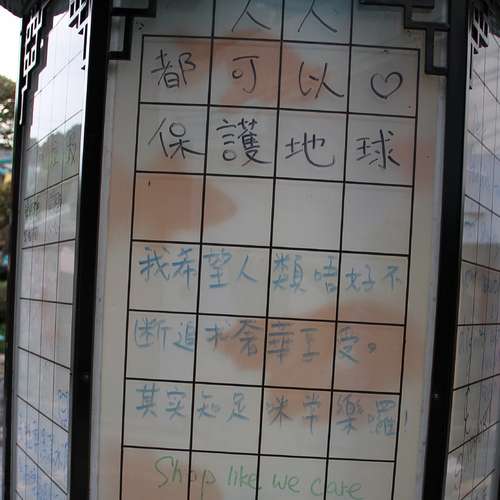 人人
都可以♡
保護地球
我希望人類唔好不
斷追求奢華享受。
其實知足咪常樂囉!
Shop like we care